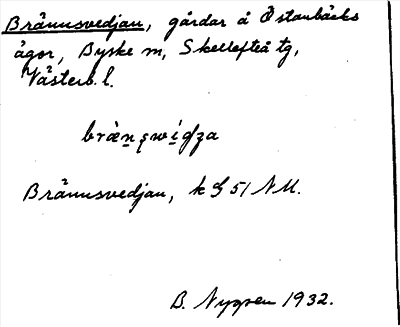 Brännsvedjan, gårdar å Östanbäcks
ägor, Byske sn, Skellefteå tg,
Västerb. l.
Brännsvedjan, k G 51 NU.
B. Nygren 1932.